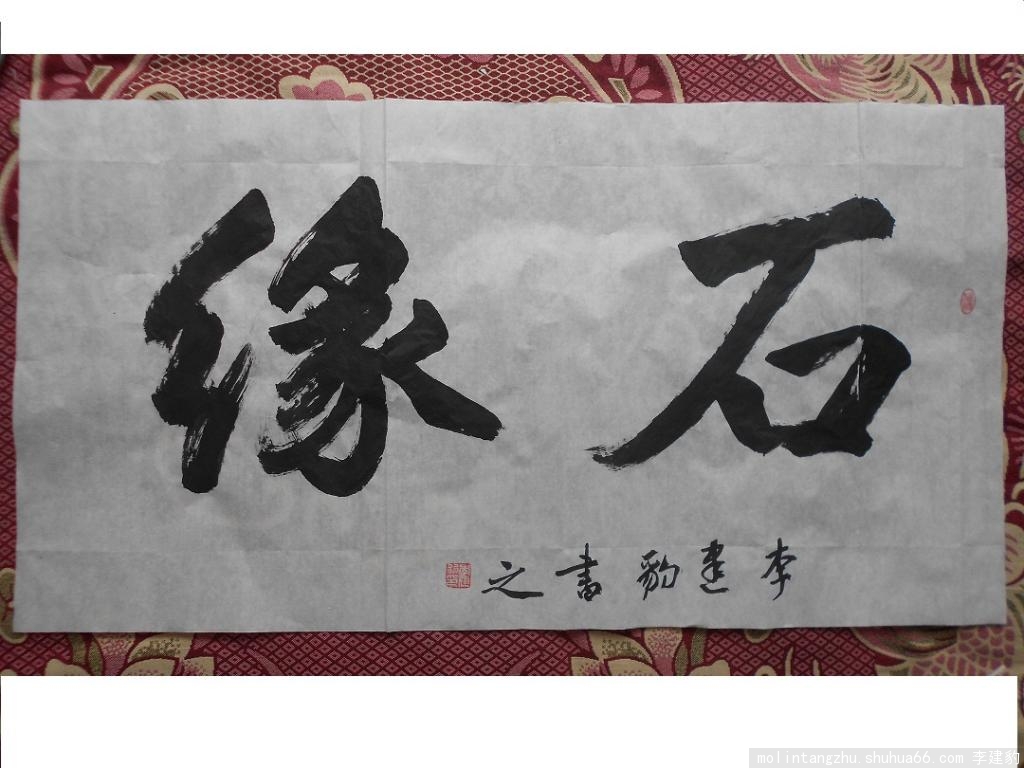 石緣
李建豹書之
molintangzhu.shuhua66.com 李建豹